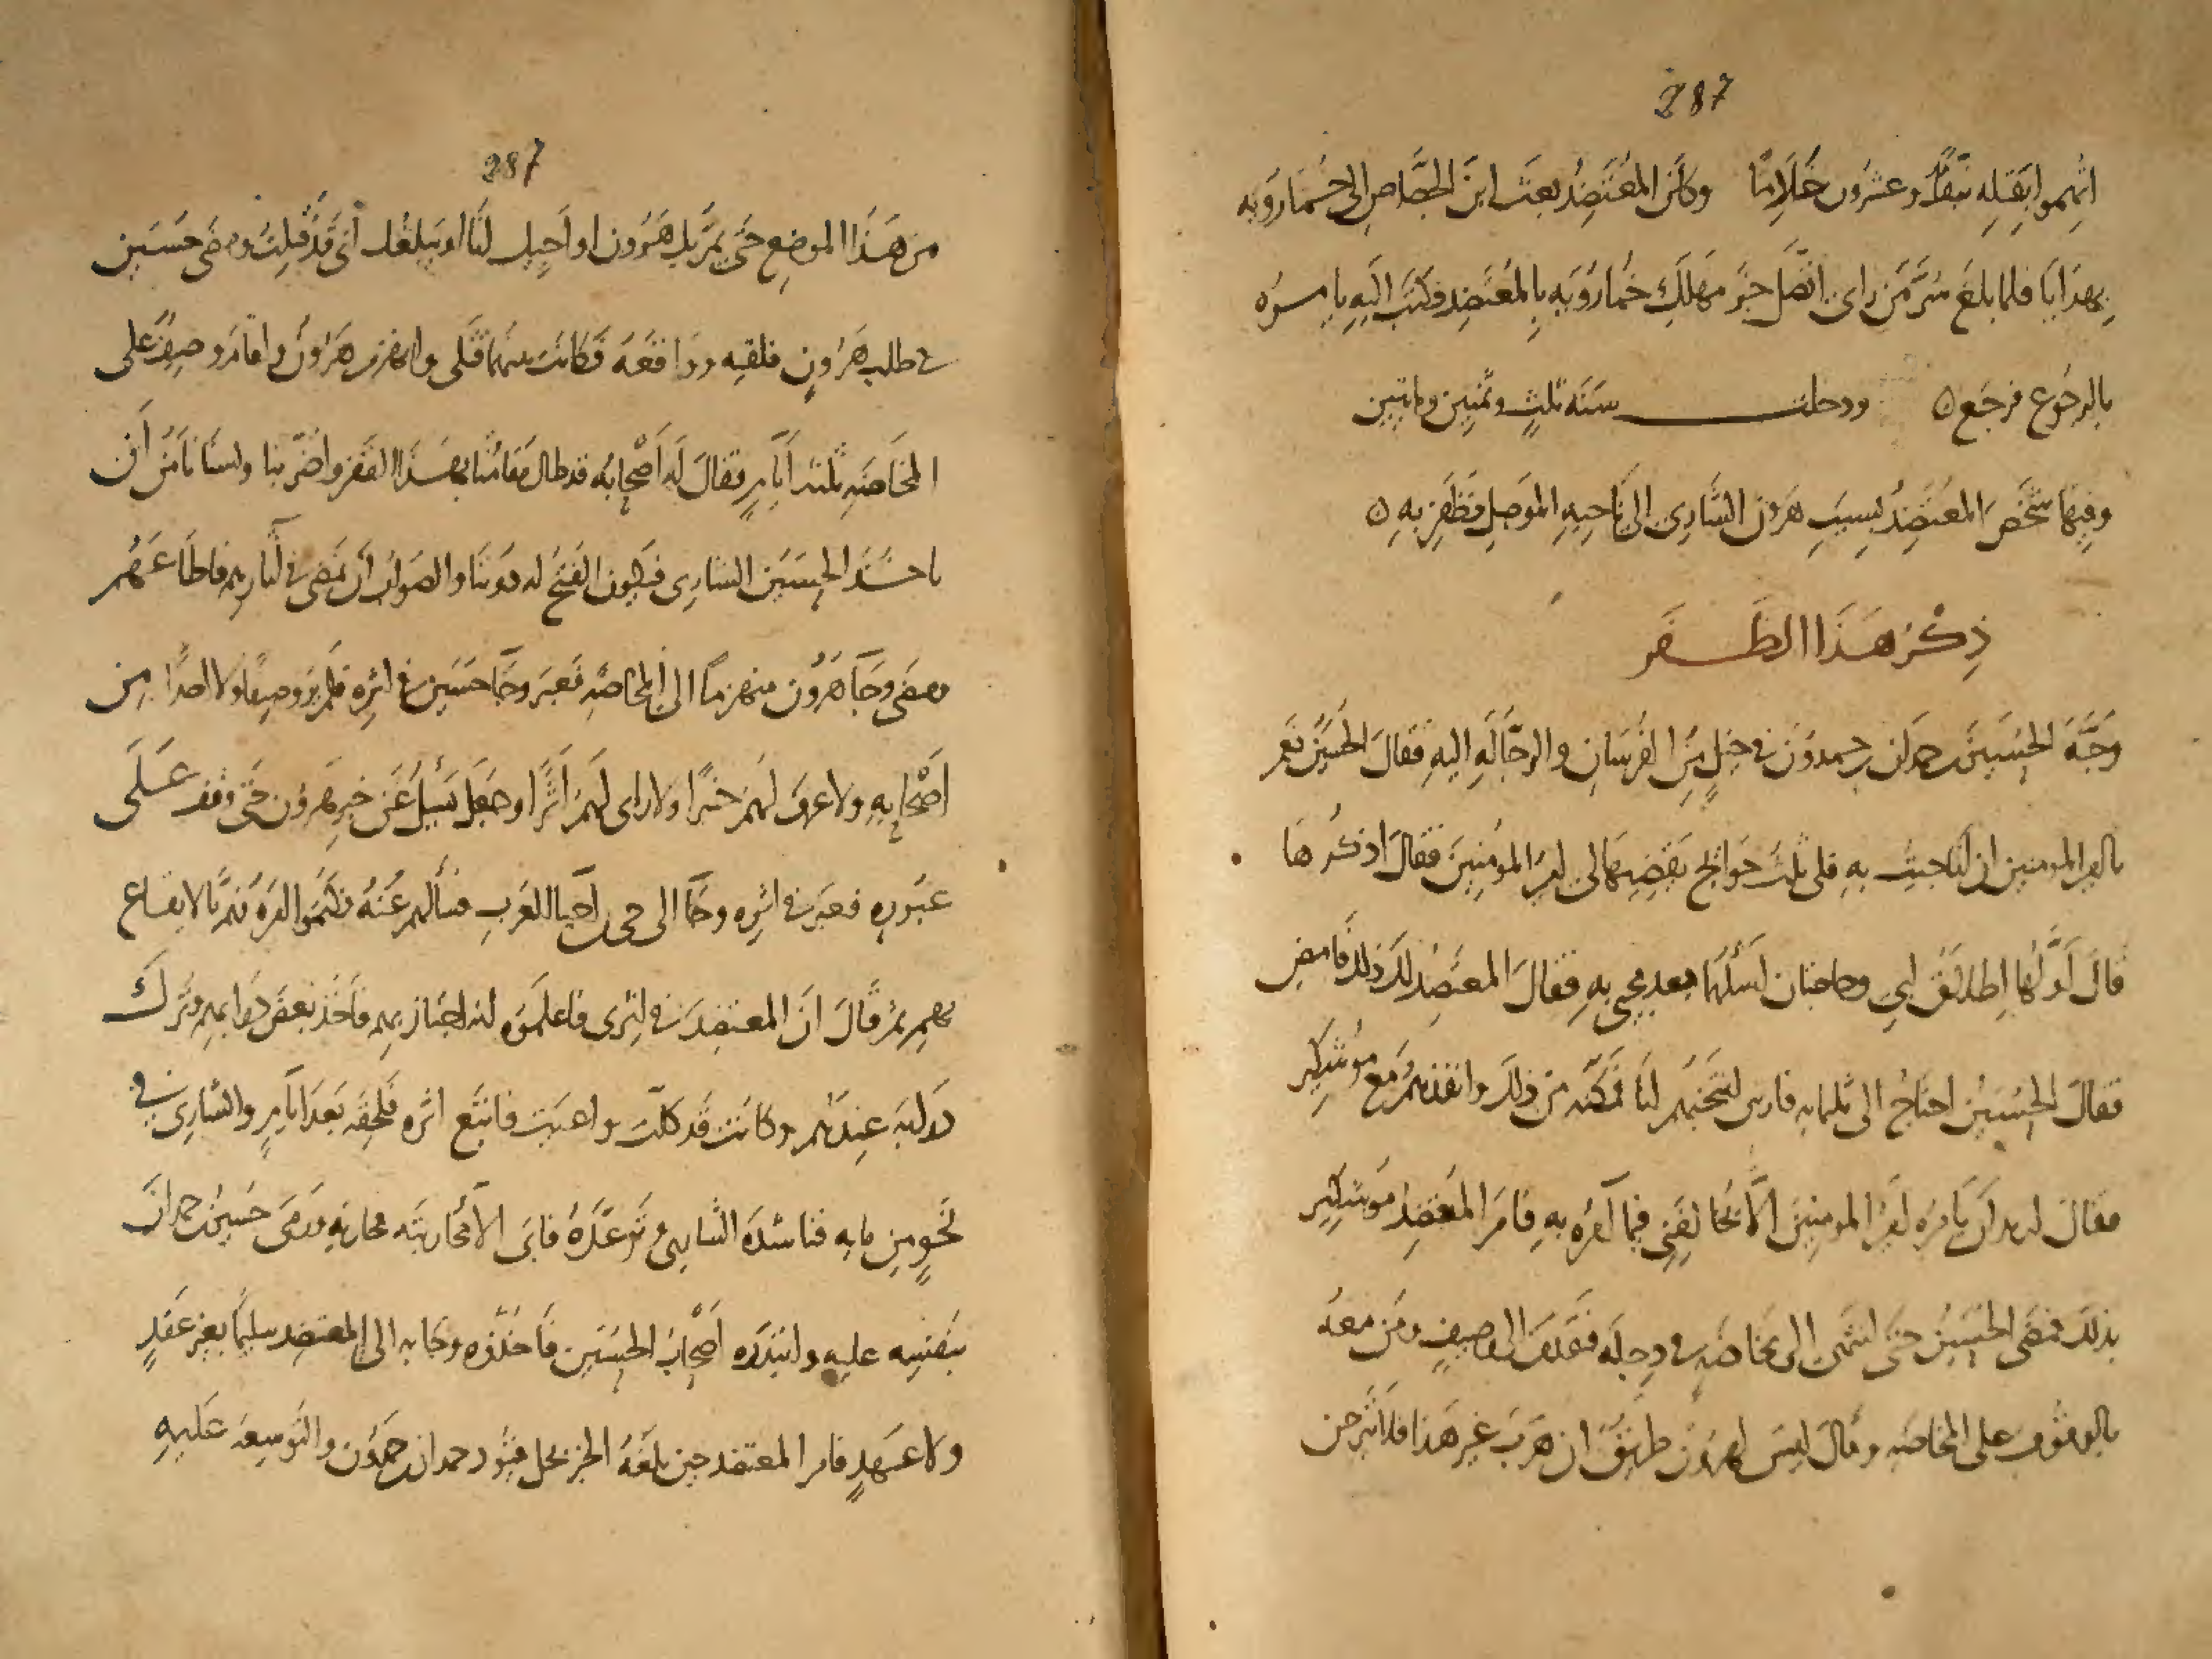 287
اتهموا بقتله نيّف وعشرون خادمًا وكان المعتضد بعث ابن الجصّاص الى خمارويه
بهدايا فلما بلغ سرّ من راى اتّصل خبر مهلك خمارويه بالمعتضد فكتب اليه يامره
بالرجوع فرجع ٥ ودخلت سنة ثلث وثمنين ومايتين
وفيها شخص المعتضد بسبب هرون الشاري الى ناحيه الموصل فظفر به ٥
ذكر هذا الظفر
وجّه الحسين بن حمدان بن حمدون في خيل من الفرسان والرجّاله اليه فقال الحسين نعم
يا امير المومنين ان انا جيت به فلى ثلث حوايج يقضيها لى امير المومنين فقال اذكرها
قال اوّلها اطلاق ابي وحاجتان اسئلهما بعد مجي به فقال المعتضد لك ذلك فامض
فقال الحسين احتاج الى ثلثمايه فارس انتخبهم انا فمكّنه من ذلك وانفذهم مع موشكير
فقال اريد ان يامره امير المومنين الّا يخالفني فيما آمره به فامر المعتضد موشكير
بذلك فمضى الحسين حتى انتهى الى مخاضه في دجله فتقدم الى وصيف ومن معه
بالوقوف على المخاضه وقال ليس لهرون طريق ان هرب غير هذا فلا تبرحن
287
من هذا الموضع حتى يمرّ بك هرون او اجيك انا او يبلغك انى قد قتلت ومضى حسين
في طلب هرون فلقيه وواقعه فكانت بينهما قتلى وانهزم هرون واقام وصيف على
المخاضه ثلثه ايام فقال له اصحابه قد طال مقامنا بهذا القفر واضرّ بنا ولسنا نامن ان
ياخذ الحسين الشاري فيكون الفتح له دوننا والصواب ان نمضي في آثارهم فاطاعهم
ومضى وجا هرون منهزما الى المخاضه فعبر وجا حسين في اثره فلم ير وصيفا ولا احدا من
اصحابه ولا عرف لهم خبرا ولا راى لهم اثرا وجعل يسئل عن خبر هرون حتى وقف على
عبوره فعبر في اثره وجا الى حى من احيا العرب فسألهم عنه فكتموا امره فهمّ بالايقاع
بهم ثم قال انّ المعتضد في اثرى فاعلموه انه اجتاز بهم فاخذ بعض دوابهم وترك
دوابه عندهم وكانت قد كلّت واعيت فاتبع اثره فلحقه بعد ايام والشاري في
نحو من مايه فناشده الشاري وتوعّده فابى الا محاربته فحاربه ورمى حسين بن حمدان
بنفسه عليه وابتدره اصحاب الحسين فاخذوه وجا به الى المعتضد سليما بغير عقد
ولا عهد فامر المعتضد حين بلغه الخبر بحل قيود حمدان بن حمدون والتوسعه عليه